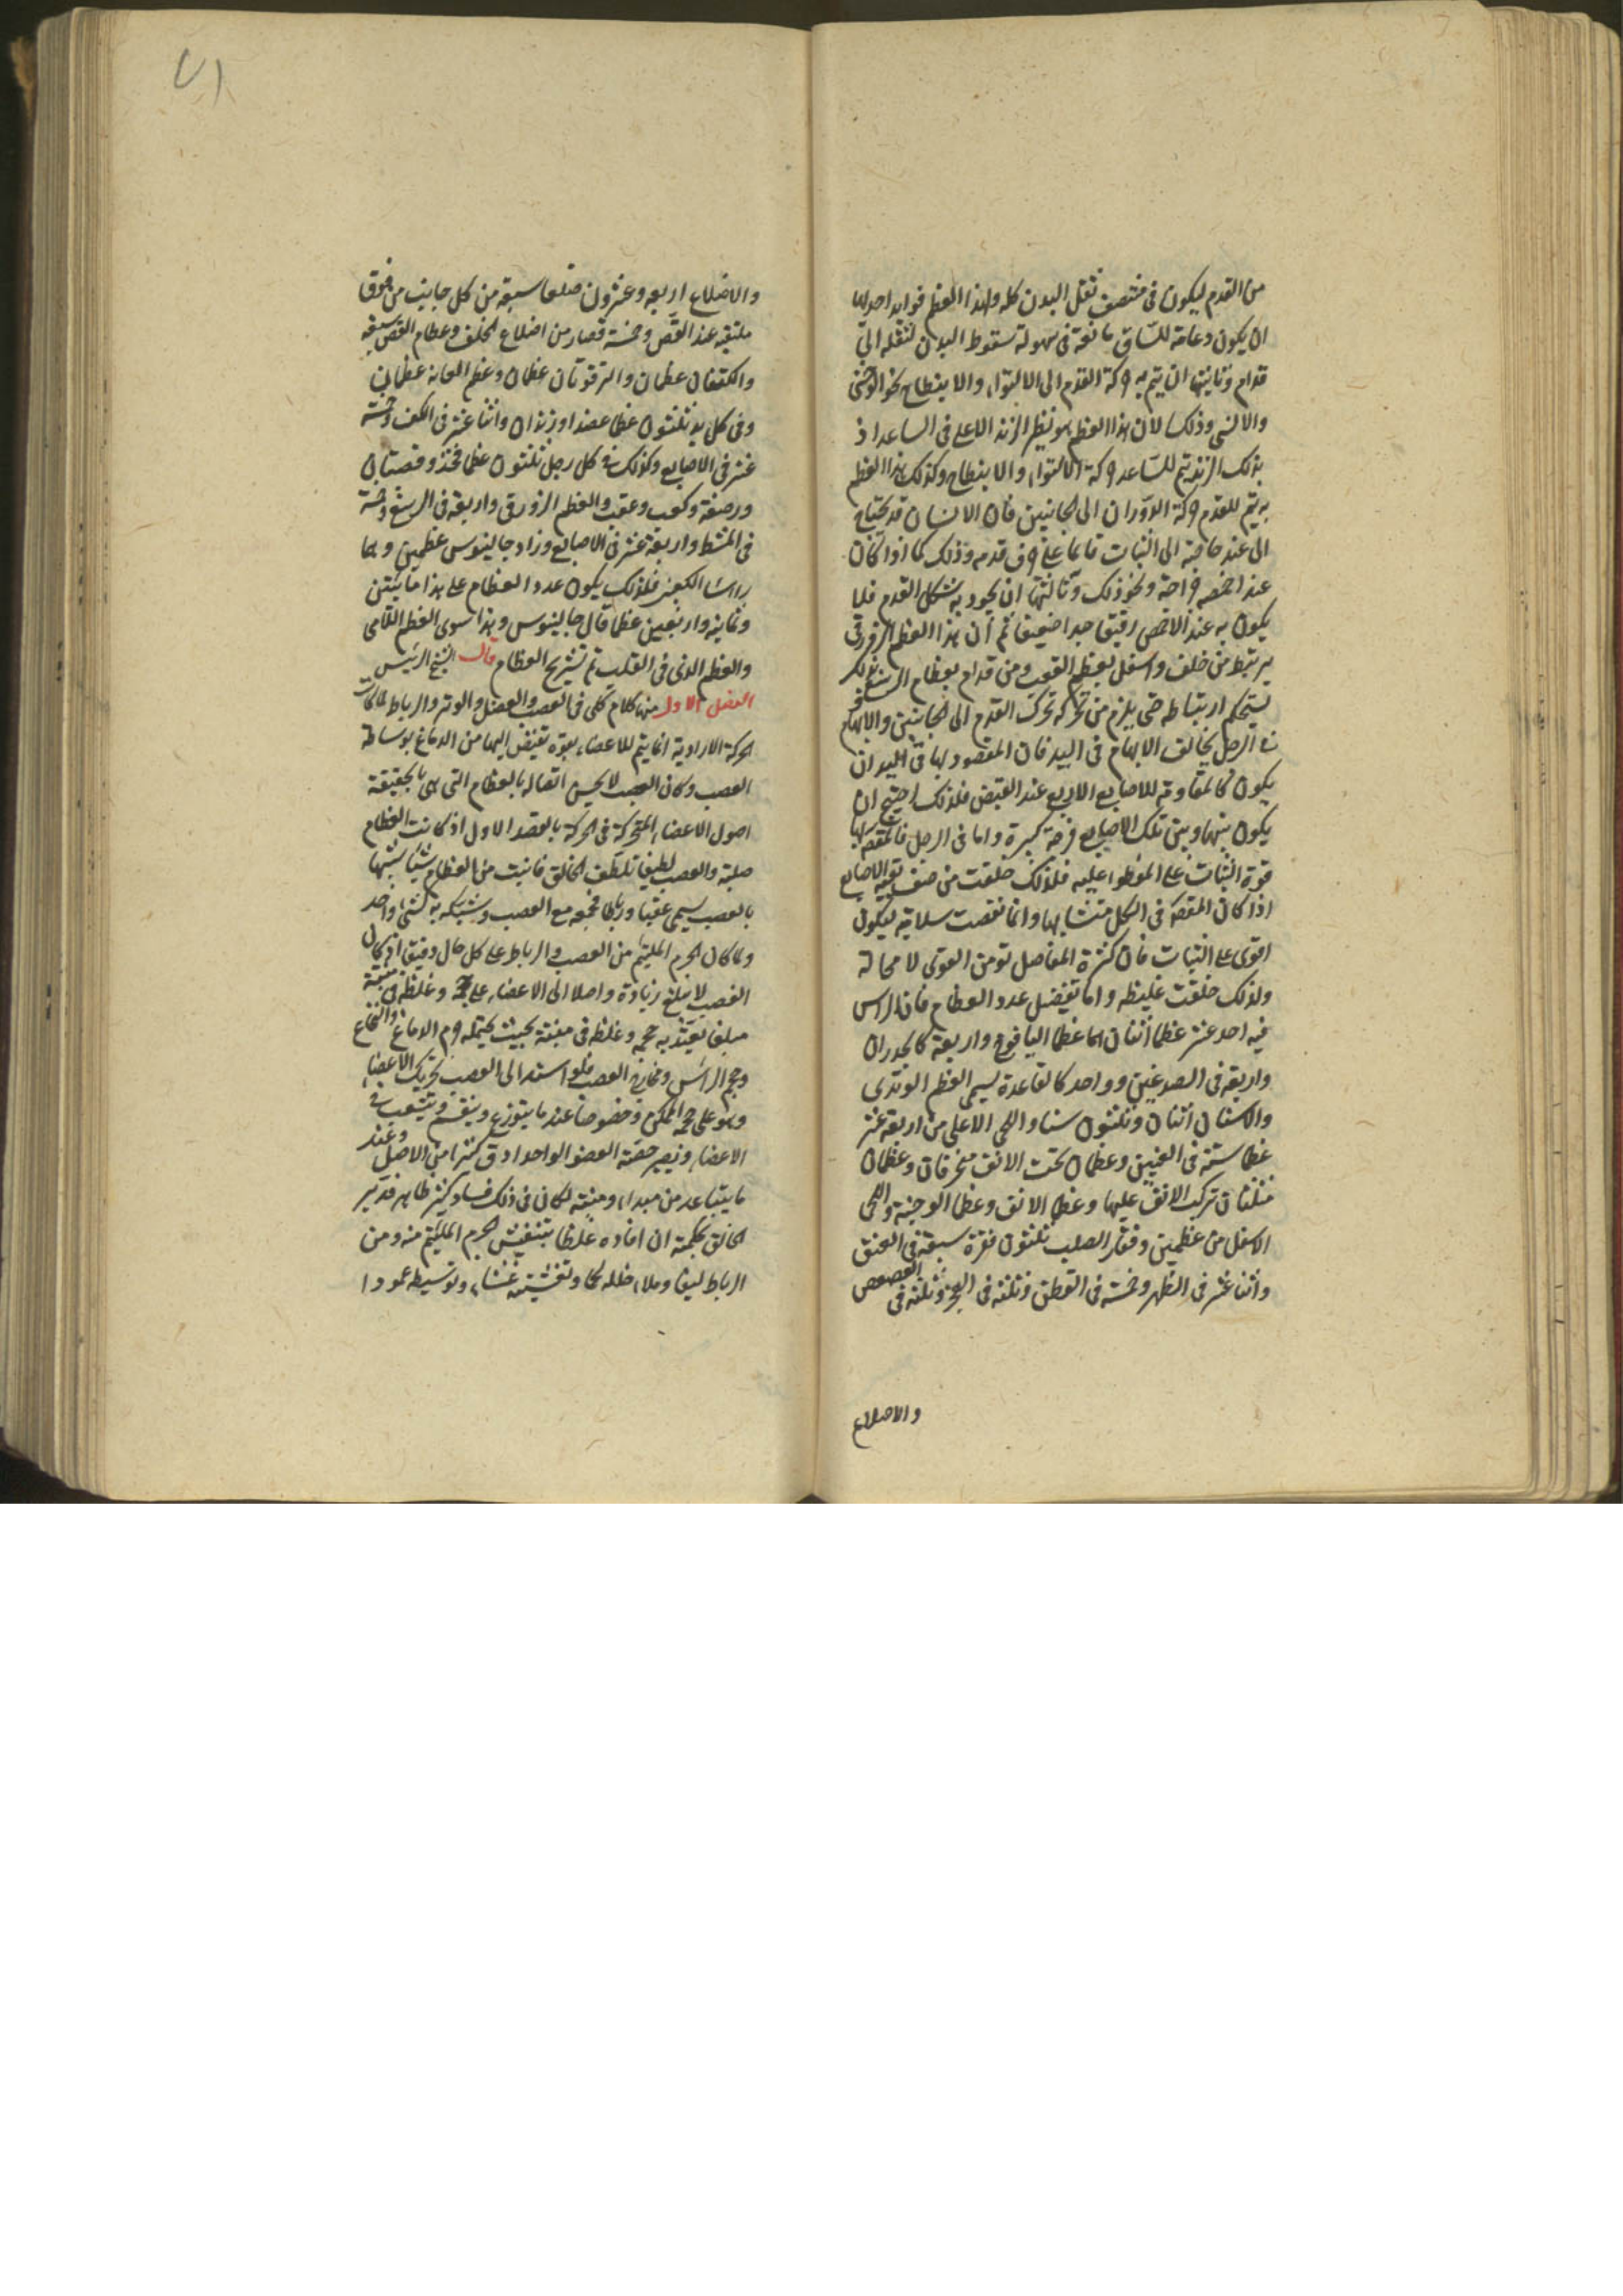 من القدم ليكون فى منتصف ثقل البدن كله ولهذا العظم فوايد احدلها
ان يكون دعامة للساق مانعة فى سهولة سقوط البدن لثقله الى
قدام وثانيتها ان يتم به حركة القدم الى الالتواء والانبطاح نحو الوحشى
والانسى وذلك لان هذا العظم هو نظير الزند الاعلى فى الساعد اذ
بذلك الزند تتم للساعد حركة الالتواء والانبطاح وكذلك هذا العظم
به يتم للقدم حركة الدوران الى الجانبين فان الانسان قد يحتاج
الى عند حاجته الى الثبات قايما على حرف قدمه وذلك كما اذا كان
عند اخمصه جراحة ونحو ذلك وثالثتها ان يجود به شكل القدم فلا
يكون به عند الاخمص رقيقا جدا ضعيفا ثم ان هذا العظم الزورقى
يرتبط من خلف واسفل بعظم العقب ومن قدام بعظام الرسغ بذلك
يستحكم ارتباطه حتى يلزم من تحركه تحرك القدم الى الجانبين والابهام
فى الرجل يخالف الابهام فى اليد فان المقصود بها فى اليد ان
يكون كالمقاومة للاصابع الاربع عند القبض فلذلك احتيج ان
يكون بينها وبين تلك الاصابع فرجة كبيرة واما فى الرجل فالمقصد بها
قوة الثبات على الموطوا عليه فلذلك خلقت من صف بقية الاصابع
اذا كان المقصد فى الكل متشابها وانما نقصت سلامية ليكون
اقوى على الثبات فان كثرة المفاصل توهن القوى لا محالة
ولذلك خلقت غليظه واما تفصيل عدد العظام فان الراس
فيه احد عشر عظما اثنان هما عظما اليافوخ واربعة كالجدران
واربعة فى الصدغين وواحد كالقاعدة يسمى العظم الوتدى
والاسنان اثنان وثلثون سنا واللحى الاعلى من اربعة عشر
عظما ستة فى العينين وعظمان تحت الانف منحرفان وعظمان
مثلثان تركب الانف عليها وعظما الانف وعظما الوجنة واللحى
الاسفل من عظمين وفقار الصلب ثلثون فقرة سبعة فى العنق
واثنا عشر فى الظهر وخمسة فى القطن وثلثة فى العجز وثلثة فى العصعص
والاضلاع
والاضلاع اربعه وعشرون ضلعا سبعة من كل جانب من فوق
ملتقية عند القص وخمسة قصار من اضلاع الخلف وعظام القص سبعة
والكتفان عظمان والترقوتان عظمان وعظم العانة عظمان
وفى كل يد ثلثون عظما عضد اوزندان واثنا عشر فى الكف وخمسة
عشر فى الاصابع وكذلك فى كل رجل ثلثون عظما فخذ وقصبتان
ورضفة وكعب وعقب والعظم الزورقى واربعة فى الرسغ وخمسة
فى المشط واربعة عشر فى الاصابع وزاد جالينوس عظمين وهما
راسا الكتف فلذلك يكون عدد العظام على هذا مائتين
وثمانية واربعين عظما قال جالينوس وهذا سوى العظم اللامى
والعظم الذى فى القلب تم تشريح العظام قال الشيخ الرئيس
الفصل الاول منها كلام كلى فى العصب والعضل والوتر والرباط لما كانت
الحركة الارادية انما يتم للاعضاء بقوة تفيض اليها من الدماغ بوساطة
العصب وكان العصب لا يحسن اتصاله بالعظام التى هى بالحقيقة
اصول الاعضاء المتحركة فى الحركة بالقصد الاول اذ كانت العظام
صلبة والعصب لطيفا تلطف الخالق فانبت من العظام شيئا شبيها
بالعصب يسمى عقبا ورباطا فجمعه مع العصب وشبكه به كشى واحد
ولما كان الجرم الملتئم من العصب والرباط على كل حال دقيقا اذ كان
العصب لا يبلغ زيادة واصلا الى الاعضاء على حجمه وغلظه فى منبته
مبلغا يعتد به حجمه وغلظه فى منبته بحيث يحتمله جرم الدماغ والنخاع
وحجم الراس ومخارج العصب فلو استند الى العصب تحريك الاعضاء
وهو على حجمه الممكن وخصوصا عند ما يتوزع وينقسم ويتشعب فى
الاعضاء وتصير حصة العضو الواحد ادق كثيرا من الاصل وعند
ما يتباعد من مبداه ومنبته لكان فى ذلك فساد كثير ظاهر فدبر
الخالق بحكمته ان افاده غلظا بتنفيش الجرم الملتئم منه ومن
الرباط ليفا وملاء خلله لحما وتغشيته غشاء وتوسيطه عمودا